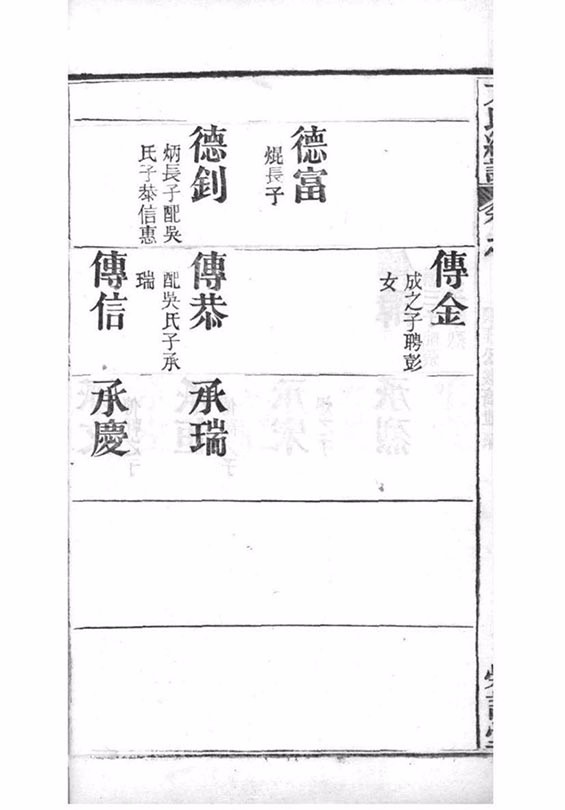 德富
焜長子
德釗
炳長子配吳
氏子恭信惠
傳金
成之子聘彭
女
傳恭
配吳氏子承
瑞
傳信
承瑞
承慶